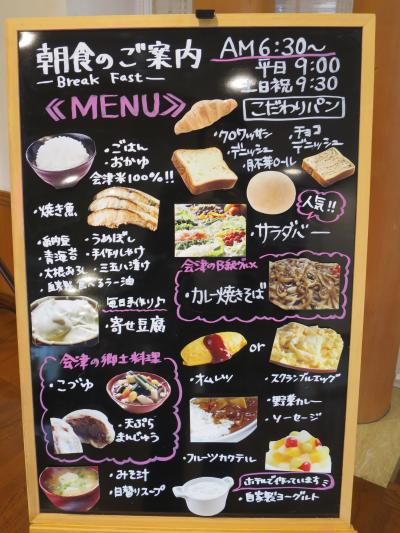 朝食のご案内
AM6:30〜
平日 9:00
土日祝 9:30
—Break Fast—
《MENU》
こだわりパン
・クロワッサン
・デニッシュ
・チョコデニッシュ
・ごはん
・おかゆ
会津米100%!!
・焼き魚
人気!!
・サラダバー
・納豆
・うめぼし
・青海苔
・手作りしょうけ
・大根おろし
・三五八漬け
・自家製食べるラー油
会津のB級グルメ
・カレー焼きそば
毎日手作り♪
・寄せ豆腐
会津の郷土料理
・こづゆ
・天ぷらまんじゅう
・オムレツ
or
・スクランブルエッグ
・野菜カレー
・ソーセージ
・フルーツカクテル
・みそ汁
・日替りスープ
ホテルで作っています
・自家製ヨーグルト